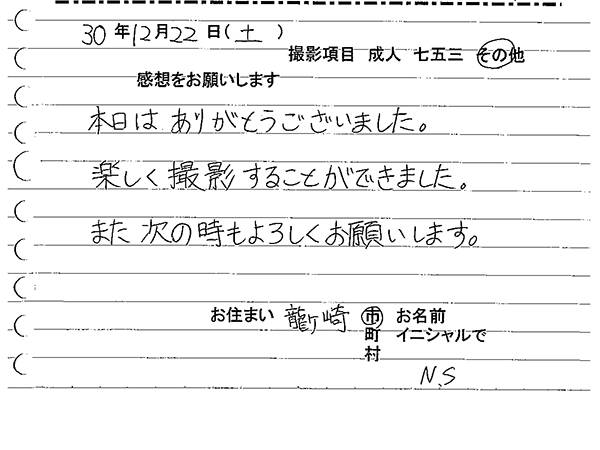 30年12月22日(土)
撮影項目 成人 七五三 その他
感想をお願いします
本日はありがとうございました。
楽しく撮影することができました。
また次の時もよろしくお願いします。
お住まい 龍ヶ崎 市 お名前
町 イニシャルで
村
N.S